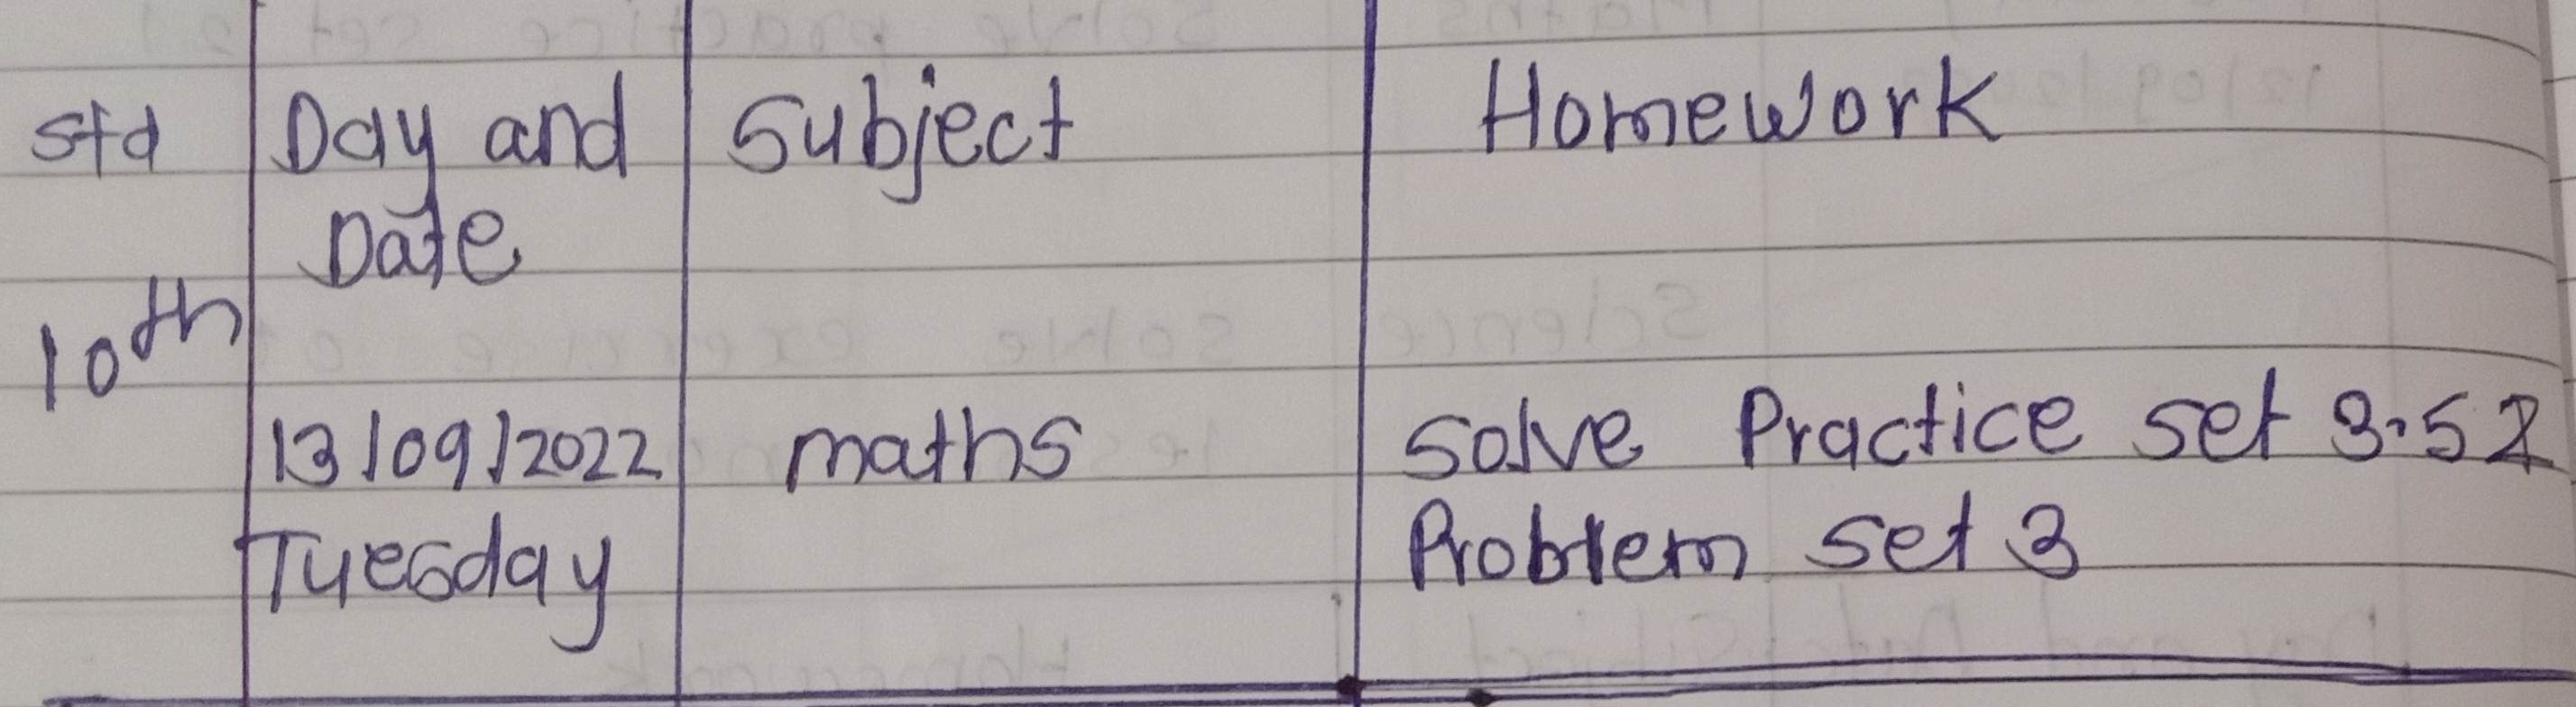 std Day and Date Subject Homework
10th
13/09/2022 maths Solve Practice set 3.52
Tuesday Problem set 3